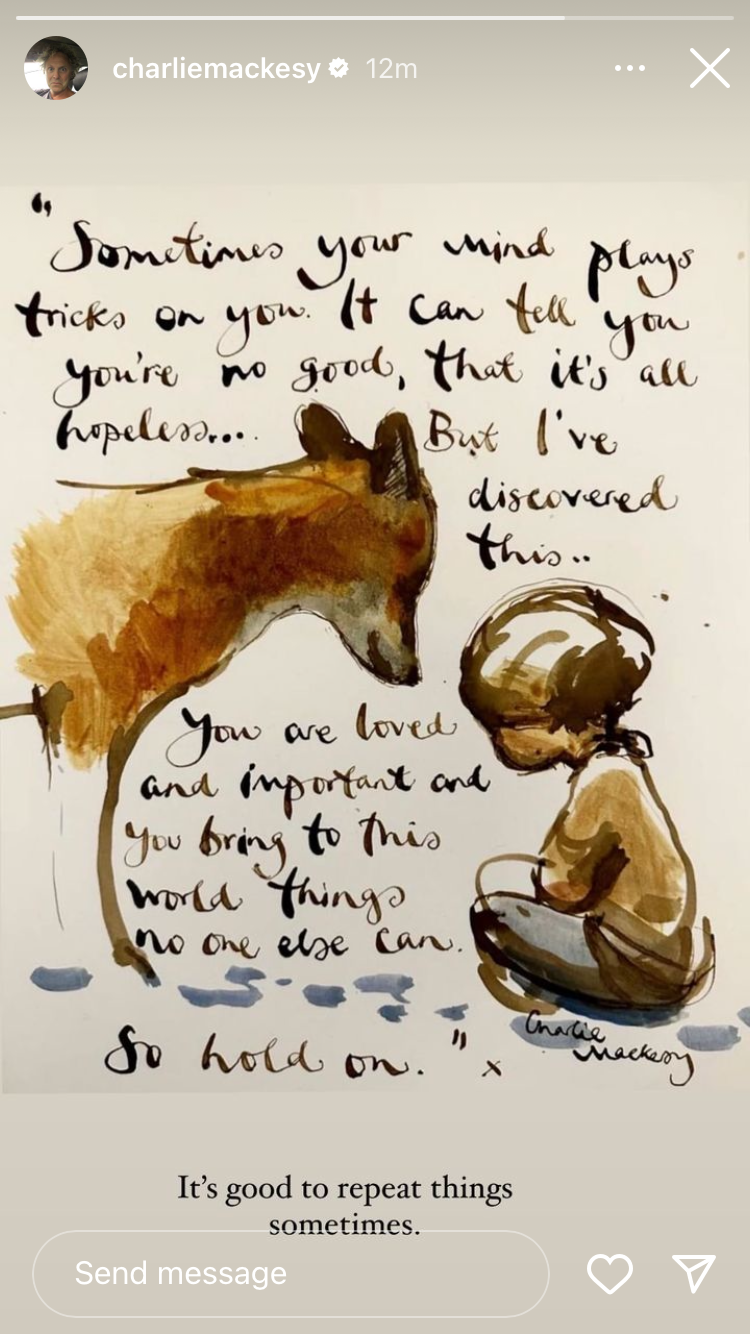 charliemackesy 12m
“Sometimes your mind plays
tricks on you. It can tell you
you're no good, that it's all
hopeless.... But I've
discovered
this..
You are loved
and important and
you bring to this
world things
no one else can.
So hold on." x
Charlie
Mackesy
It’s good to repeat things
sometimes.
Send message